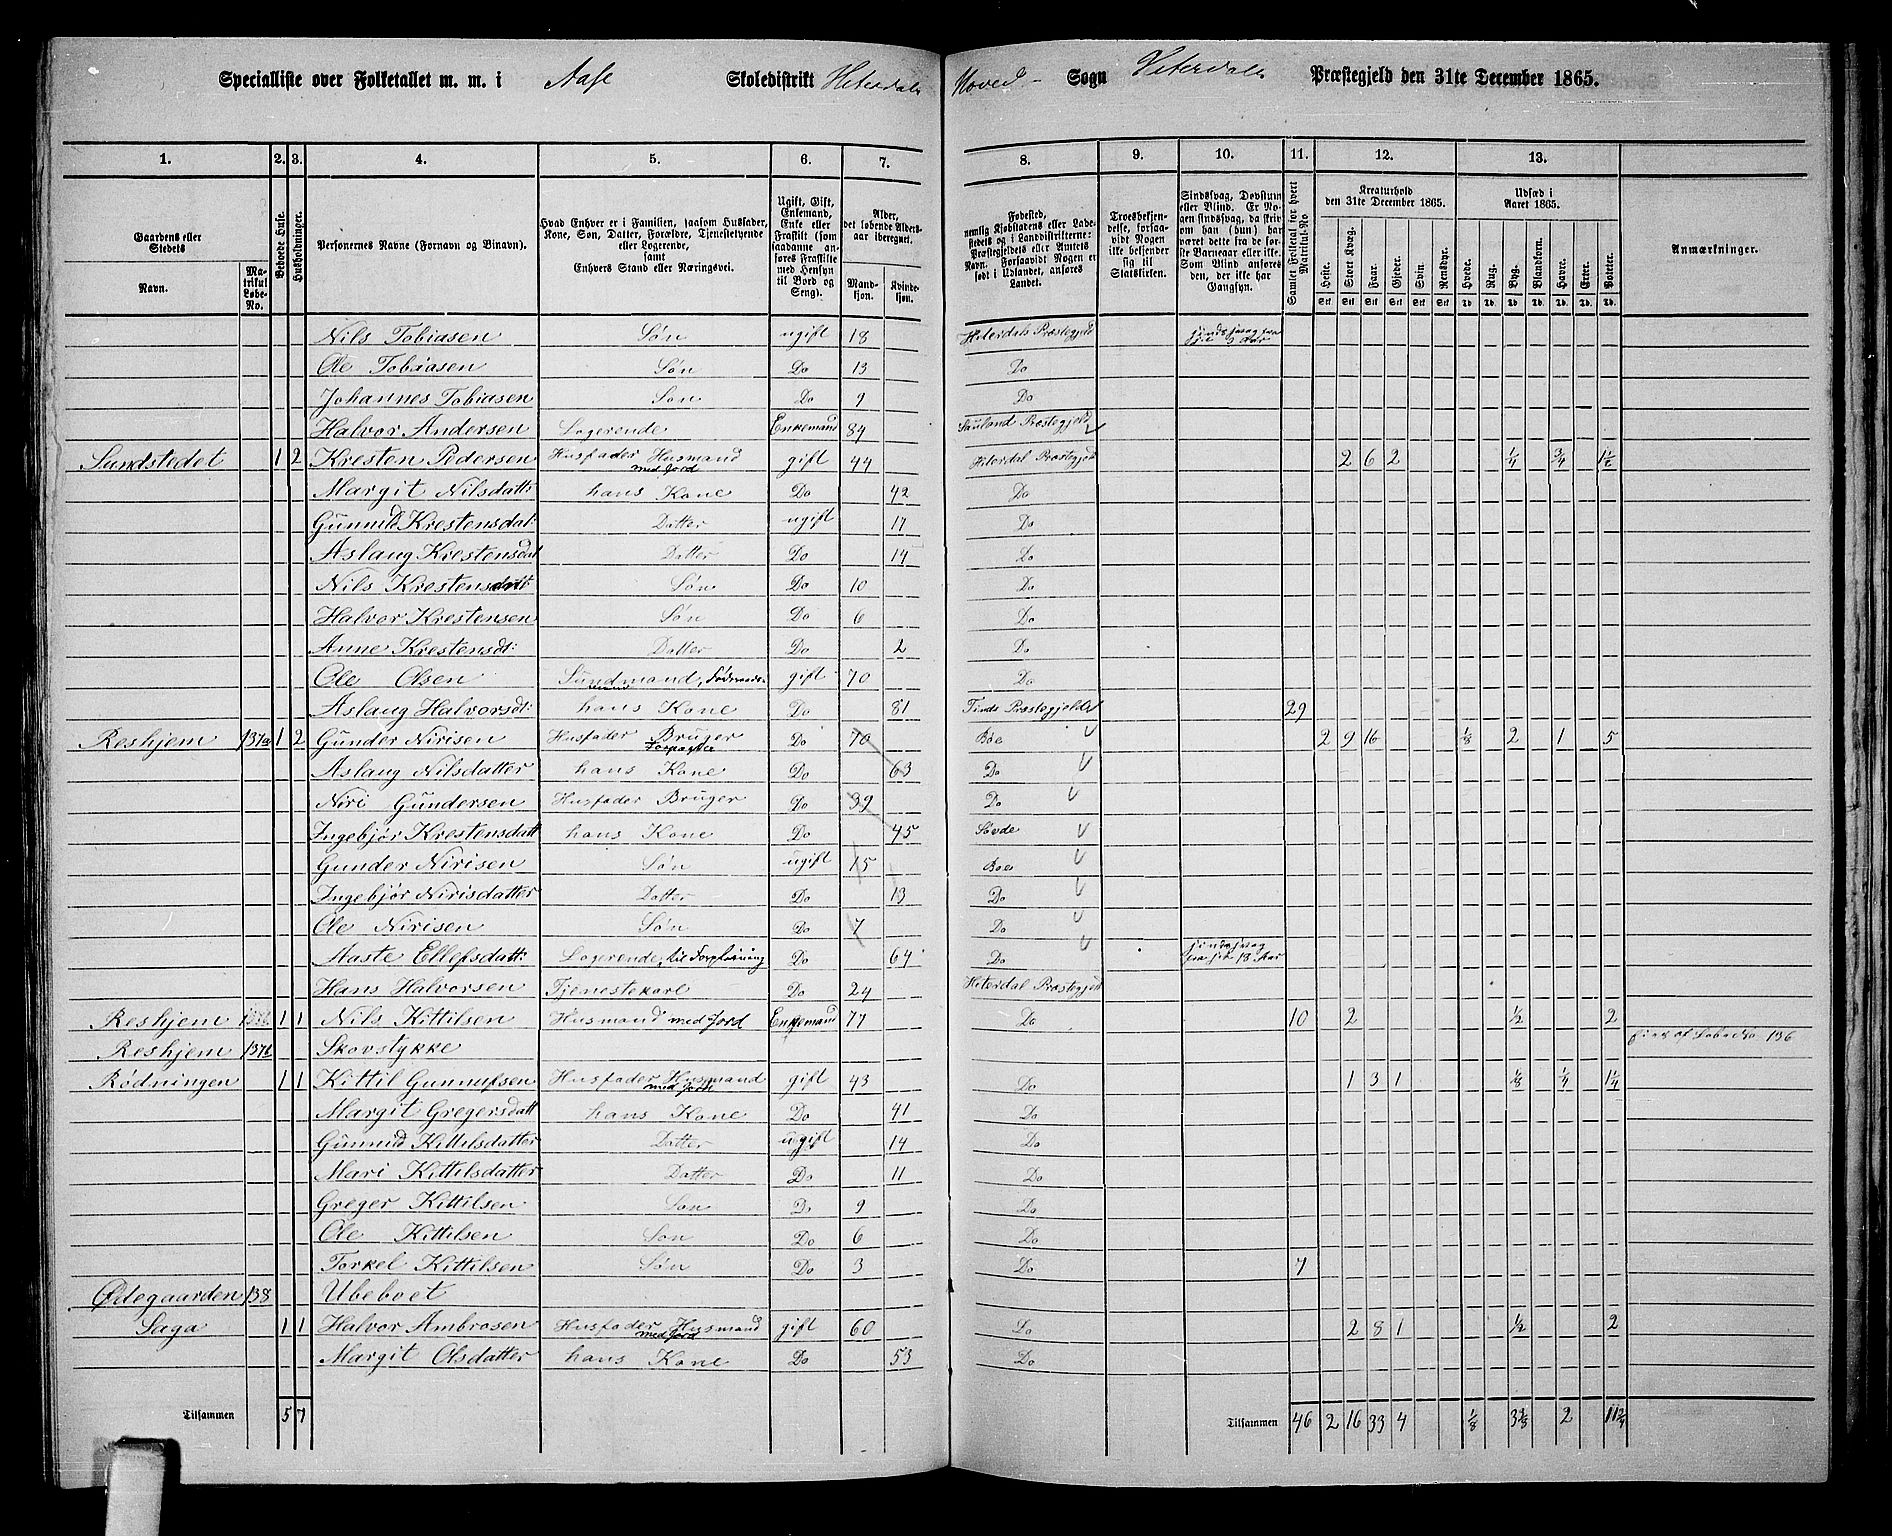 Specialliste over Folketallet m. m. i Aase Skoledistrikt Hiterdals Hoved- Sogn Hiterdals Præstegjeld den 31te December 1865.
1. 2. 3. 4. 5. 6. 7. 8. 9. 10. 11. 12. 13.
Gaardens eller Stedets
Navn.
Matrikul Løbe-No.
Beboede Huse.
Husholdninger.
Personernes Navne (Fornavn og Binavn).
Hvad Enhver er i Familien, saasom Husfader, Kone, Søn, Datter, Forældre, Tjenestetyende eller Logerende, samt Enhvers Stand eller Næringsvei.
Ugift, Gift, Enkemand, Enke eller Fraskilt (som saadanne anføres Fraskilte med Hensyn til Bord og Seng).
Alder, det løbende Aldersaar iberegnet.
Mandkjøn. Kvindekjøn.
Fødested, nemlig Kjøbstadens eller Ladestedets og i Landdistrikterne: Præstegjeldets eller Amtets Navn. Forsaavidt Nogen er født i Udlandet, anføres Landet.
Troesbekjendelse, forsaavidt Nogen ikke bekjender sig til Statskirken.
Sindssvag, Døvstum eller Blind. Er Nogen sindssvag, da skrives om han (hun) har været dette fra de første Barneaar eller ikke. Som Blind anføres den, der ikke har Gangsyn.
Samlet Folketal for hvert Matrikul-No
Kreaturhold den 31te December 1865.
Heste. Stort Kvæg. Faar. Gjeder. Svin. Rensdyr.
Udsæd i Aaret 1865.
Hvede. Rug. Byg. Blandkorn. Havre. Erter. Poteter.
Anmærkninger.
Nils Tobiasen Søn ugift 18 Hiterdals Præstegjeld sindssvag fra sju Aar
Ole Tobiasen Søn Do 13 Do
Johannes Tobiasen Søn Do 9 Do
Halvor Andersen Logerende Enkemand 84 Sauland Præstegjeld
Sundstedet 1 2 Kresten Pedersen Husfader Husmand med Jord gift 44 Hiterdal Præstegjeld 2 6 2 1/4 3/4 1 1/2
Margit Nilsdatt: hans Kone Do 42 Do
Gunnild Krestensdat: Datter ugift 17 Do
Aslaug Krestensdat Datter Do 14 Do
Nils Krestensdatt: Søn Do 10 Do
Halvor Krestensen Søn Do 6 Do
Anne Krestensdt: Datter Do 2 Do
Ole Olsen Sundmand, gift 70 Do
Aslaug Halvorsdt: hans Kone Do 81 Tinds Præstegjeld 29
Reshjem 137a 1 2 Gunder Nirisen Husfader Bruger Forpagter Do 70 Bøe 2 9 16 1/8 2 1 5
Aslaug Nilsdatter hans Kone Do 63 Do
Niri Gundersen Husfader Bruger Do 39 Do
Ingebjør Krestensdatt hans Kone Do 45 Søvde
Gunder Nirisen Søn ugift 15 Boe
Ingebjør Nirisdatter Datter Do 13 Do
Ole Nirisen Søn Do 7 Do
Aaste Ellefsdatt: Logerende, til Forpleining Do 64 Do sindssvag fra sit 18 Aar
Hans Halvorsen Tjenestekarl Do 24 Hiterdal Præstegjeld
Reshjem 1 1 Nils Kittilsen Husmand med Jord Enkemand 77 Do 10 2 1/2 2
Reshjem 137b Skovstykke af Løbe No 136
Rødningen 1 1 Kittil Gunnufsen Husfader Husmand med Jord gift 43 Do 1 3 1 1/8 1/4 1 1/4
Margit Gregersdatt hans Kone Do 41 Do
Gunnild Kittilsdatter Datter ugift 14 Do
Mari Kittilsdatter Datter Do 11 Do
Greger Kittilsen Søn Do 9 Do
Ole Kittilsen Søn Do 6 Do
Torkel Kittilsen Søn Do 3 Do 7
Ødegaarden 138 Ubeboet
Saga 1 1 Halvor Ambrosen Husfader Husmand med Jord gift 60 Do 2 8 1 1/2 2
Margit Olsdatter hans Kone Do 53 Do
Tilsammen 5 7 Tilsammen 46 2 16 33 4 1/8 3 3/8 2 11 2/4